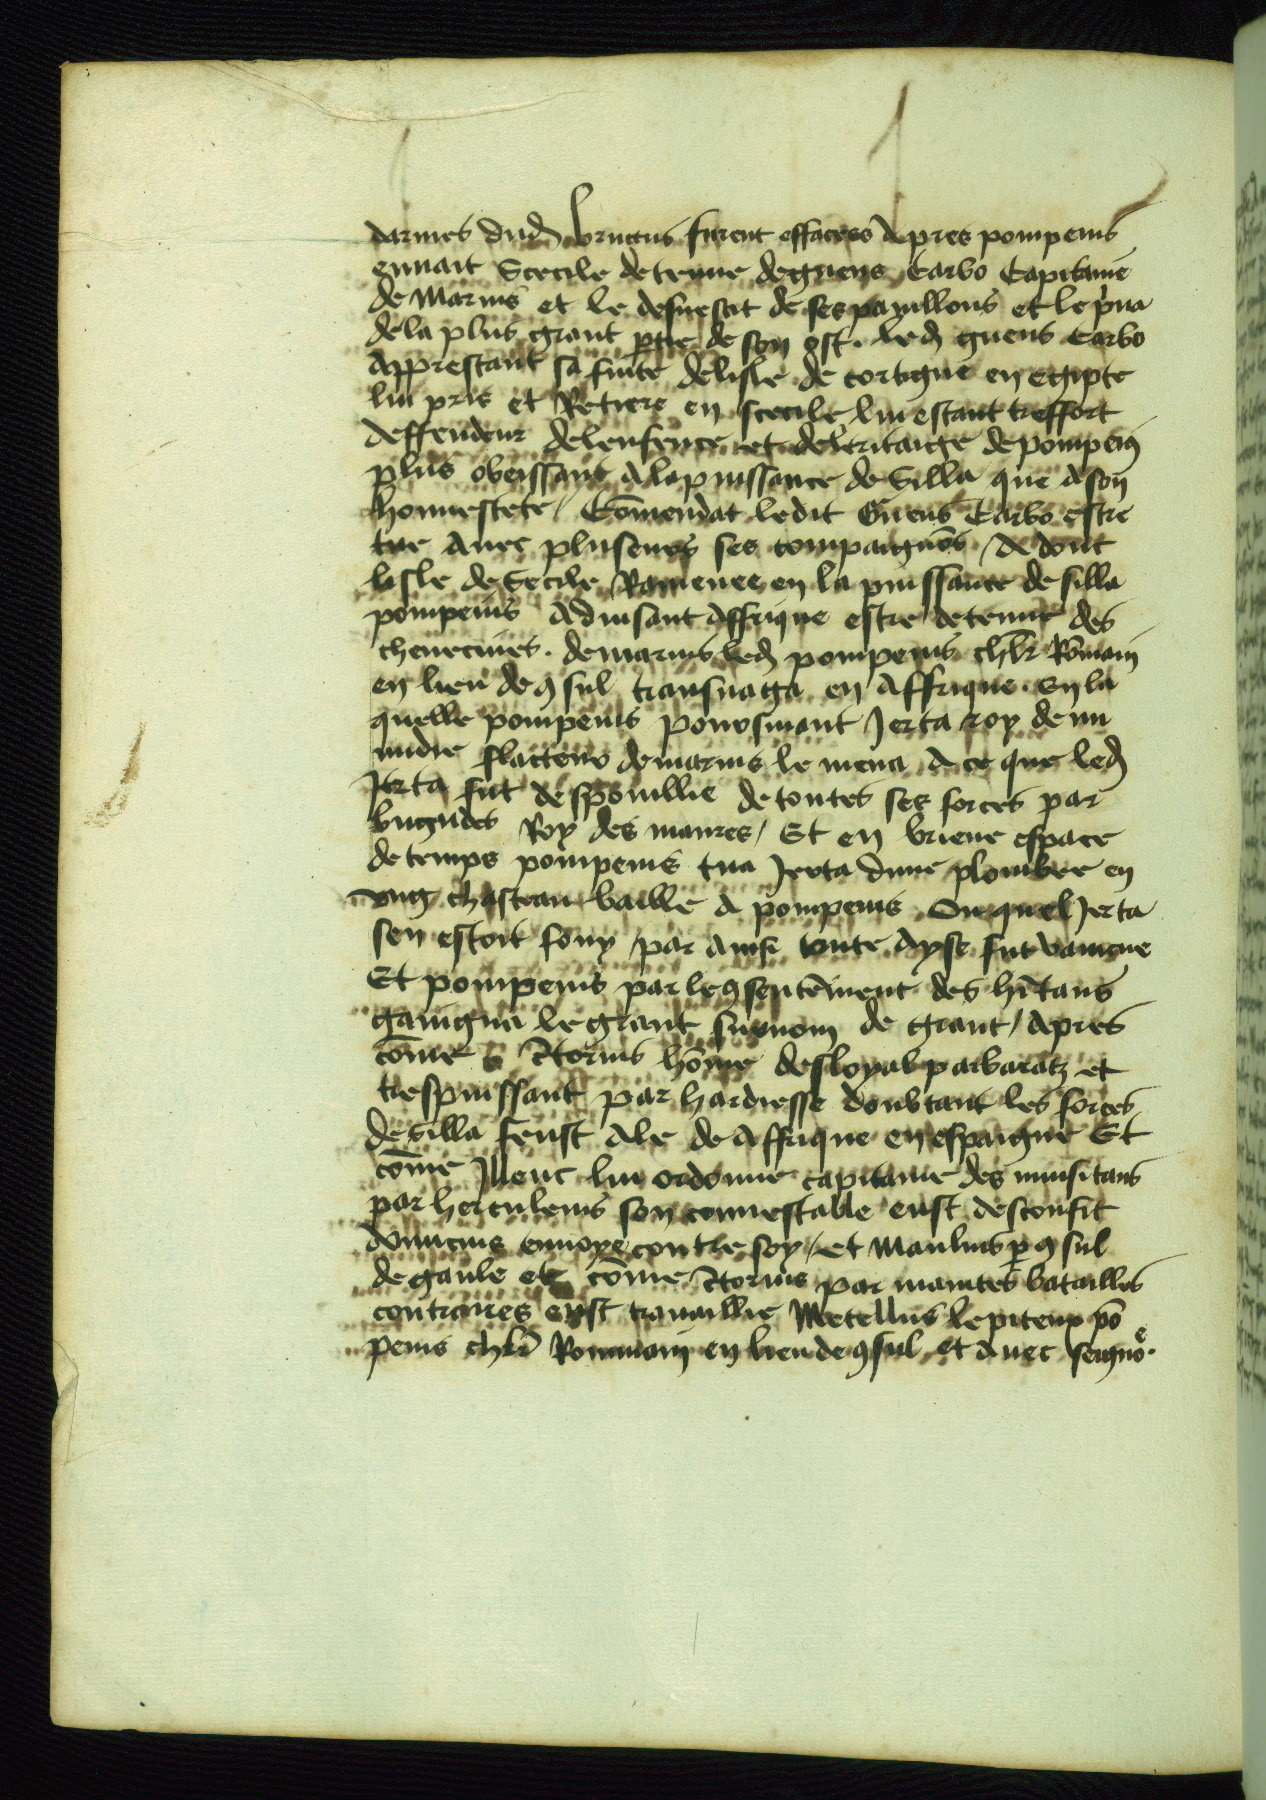 darmes dud bructus furent effacees Apres pompeius
envait Scecile detenue de gneus Carbo Capitaine
de Marius et le desvestit de ses pavillons et le priva
de la plus grant ptie de son ost. led gneus Carbo
Apprestant sa fuite de lisle de cortigue en egipte
lui pris et Retiere en scecile lui estant treffort
deffendeur de lenfence et deleritaige de pompeius
plus obeissant A la puissance de Silla que A son
honnestete / Cōmendat ledit Gneus Carbo estre
tue Avec plusieurs ses compaignōs / Adont
lisle de Secile Ramenee en la puissance de silla
pompeius Advisant Affrique estre detenue des
chenecines . de marius led pompeius chlr Rōmain
en lieu de 9sul transnaga en Affrique . En la
quelle pompeius poursuivant Jerta roy de nu
midie flacteur de marius le mena A ce que led
Jerta fut despouillie de toutes ses forces par
bugudes Roy des maures / Et en brieve espace
de temps pompeius tua Jerta dune plombee en
ung chasteau baille A pompeius Ou quel Jerta
sen estoit fouy / par ainsi toute Ayse fut vaincue
Et pompeius par le 9sentement des hītans
gaingna le grant surnom de grant / Apres
cōme Storius hōme desloyal par baratz et
trespuissant par hardiesse doubtant les forces
de silla feust Ale de Affrique en espaigne Et
cōme Illeuc lui ordonne capitaine des muisitans
par herculeius son connestable eust desconfit
dunicius envoye contre soy / et Manlius p 9sul
de gaule etc cōme Storius par maintes batailles
contraires eust travaillie Metellus le piteux pō
peius chlr Rommain en lieu de 9sul et Avec seigno.